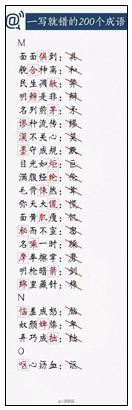 @一写就错的200个成语
M
面面俱到：具
貌合神离：和
民生凋敝：蔽
明辨是非：辩
名列前茅：矛
谬种流传：缪
漠不关心：莫
墨守成规：默
目光如炬：巨
满腹经纶：伦
毛骨悚然：耸
弥天大谎：慌
面黄肌瘦：饥
秘而不宣：密
名噪一时：燥
摩拳擦掌：磨
明枪暗箭：剑
绵里藏针：棉
N
恼羞成怒：脑
奴颜婢膝：卑
弄巧成拙：绌
O
呕心沥血：沤